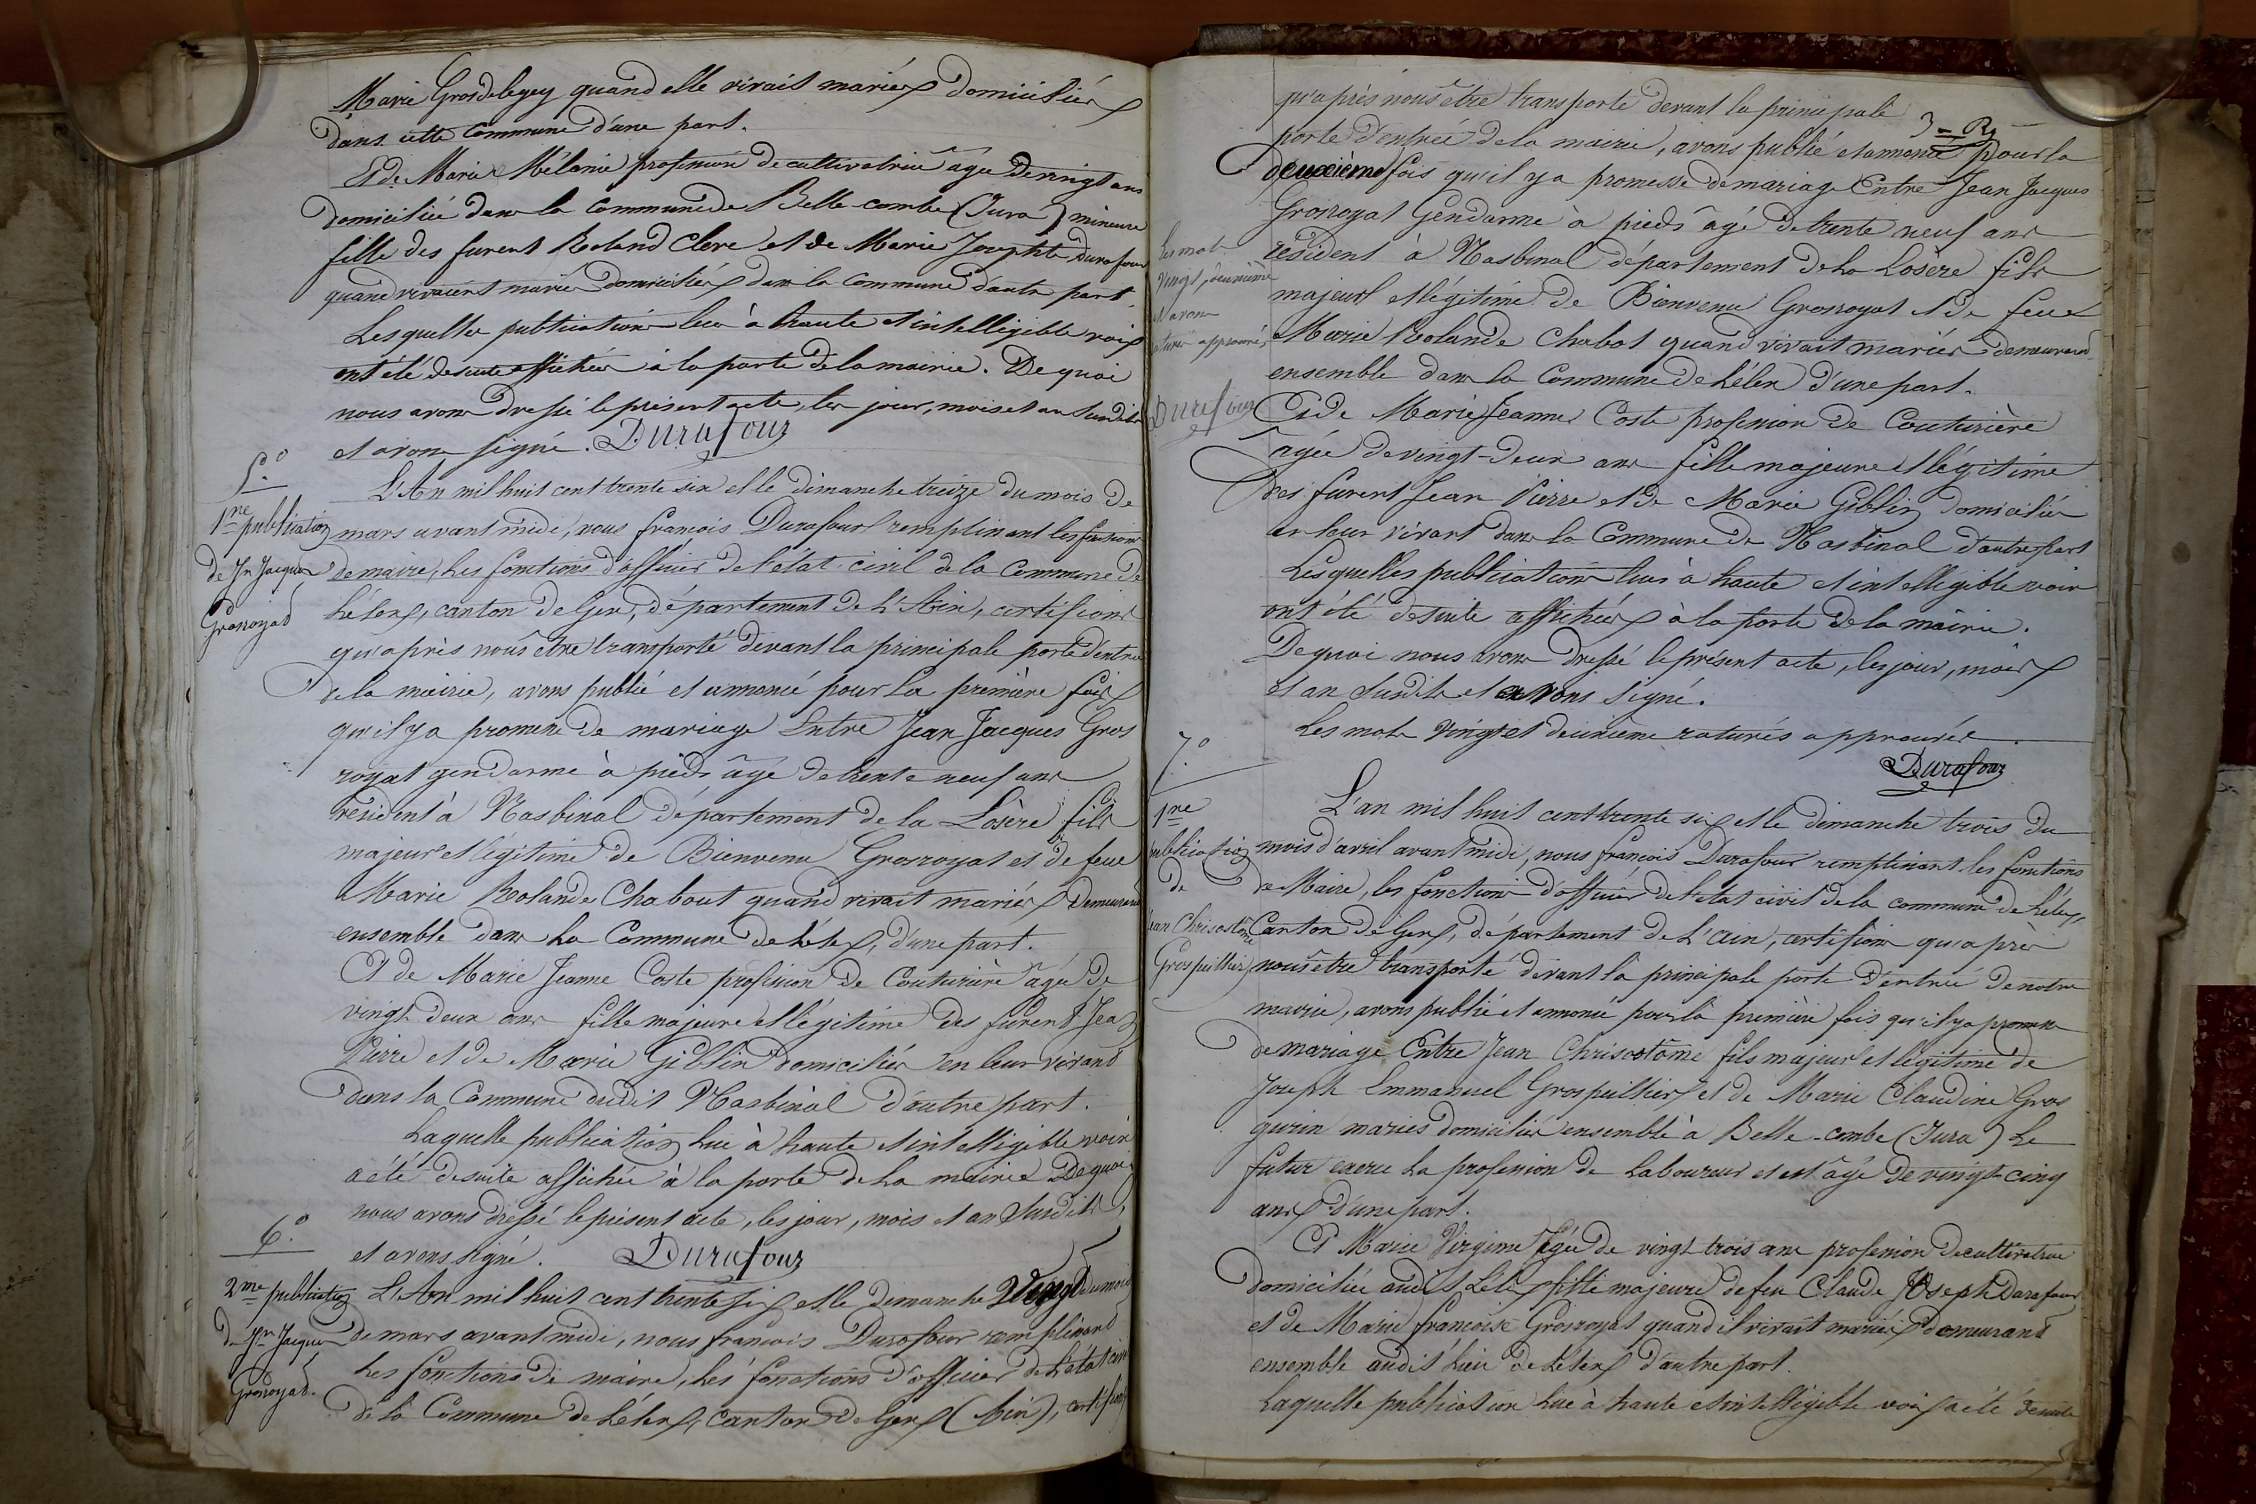 Marie Grosdelegey quand elle vivait mariés domiciliés
dans cette Commune d'une part.
Et de Marie Mélanie profession de cultivatrice âgée de vingt ans
domiciliée dans la Commune de Belle-combe (Jura) mineure
fille des furent Roland Clerc et de Marie Josephte Durafour
quand vivaient mariés domiciliés dans la Commune d'autre part.
Lesquelles publications lues à haute et intelligible voix
ont été de suite affichées à la porte de la mairie. De quoi
nous avons dressé le présent acte, les jour, mois et an susdits
et avons signé. Durafour
5.°
1re publication
de Jn Jacques
Grosroyat
L'An mil huit cent trente six et le dimanche treize du mois de
mars avant midi, nous francois Durafour remplissant les fonctions
de maire, les fonctions d'officier de l'état civil de la Commune de
Lélex, canton de Gex, département de L'Ain, certifions
qu'après nous être transporté devant la principale porte d'entrée
de la mairie, avons publié et annoncé pour la première fois
qu'il y a promesse de mariage Entre Jean Jacques Gros
royat gendarme à pieds âgé de trente neuf ans
résident à Nasbinal département de la Losère fils
majeur et légitime de Bienvenu Grosroyat et de feue
Marie Rolande Chabout quand vivait mariés Demeurand
ensemble dans la Commune de Lélex, d'une part.
Et de Marie Jeanne Coste profession de Couturière âgée de
vingt deux ans fille majeure et légitime des furent Jean
Pierre et de Marie Giblin domiciliés en leur vivant
dans la Commune dudit Nasbinal d'autre part.
Laquelle publication lue à haute et intelligible voix
a été de suite affichée à la porte de la mairie De quoi
nous avons dressé le présent acte, les jour, mois et an susdits,
et avons signé. Durafour
6.°
2me publication
de Jn Jacques
Grosroyat.
L'An mil huit cent trente six et le dimanche Vingt du mois
de mars avant midi, nous francois Durafour remplissant
les fonctions de maire, les fonctions d'officier de l'état civil
de la Commune de Lélex, canton de Gex (Ain), certifions
3 =
qu'après nous être transporté devant la principale
porte d'entrée de la mairie, avons publié et annoncé pour la
deuxième fois qu'il y a promesse de mariage Entre Jean Jacques
Grosroyat Gendarme à pieds âgé de trente neuf ans
résident à Nasbinal département de la Losère fils
majeur et légitime de Bienvenu Grosroyat et de feue
Marie Rolande Chabot quand vivait mariés demeurand
ensemble dans la Commune de Lélex d'une part.
Les mots
vingt, deuxième
et avons
approuvés
Durafour
Et de Marie Jeanne Coste profession de Couturière
âgée de vingt-deux ans fille majeure et légitime
des furent Jean Pierre et de Marie Giblin domiciliés
en leur vivant dans la Commune de Nasbinal d'autre part
Lesquelles publications lues à haute et intelligible voix
ont été de suite affichées à la porte de la mairie.
De quoi nous avons dressé le présent acte, les jour, mois
et an susdits et avons signé.
Les mots vingt et deuxième raturés approuvés.
Durafour
7.°
1re
publication
de
Jean Chrisostôme
Grospeillier
L'an mil huit cent trente six et le dimanche trois du
mois d'avril avant midi, nous francois Durafour remplissant les fonctions
de Maire, les fonctions d'officier de l'état civil de la commune de Lélex,
Canton de Gex, département de L'Ain, certifions qu'après
nous être transporté devant la principale porte d'entrée de notre
mairie, avons publié et annoncé pour la première fois qu'il y a promesse
de mariage Entre Jean Chrisostôme fils majeur et légitime de
Joseph Emmanuel Grospeillier et de Marie Claudine Gros
gurin mariés domiciliés ensemble à Belle-combe (Jura) Le
futur exerce la profession de Laboureur et est âgé de vingt-cinq
ans d'une part.
Et Marie Virginie âgée de vingt trois ans profession de cultivatrice
domiciliée audit Lélex fille majeure de feu Claude Joseph Durafour
et de Marie françoise Grosroyat quand il vivait mariés demeurand
ensemble audit Lieu de Lélex d'autre part.
Laquelle publication lue à haute et intelligible voix a été de suite